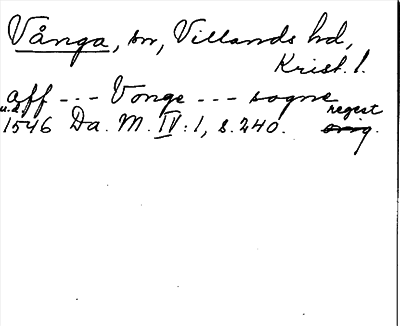 Vånga, sn, Villands hd,
Krist. l.
aff --- Vonge --- sogne
u.d. regest
1546 Da. M. IV:1, s. 240. orig.